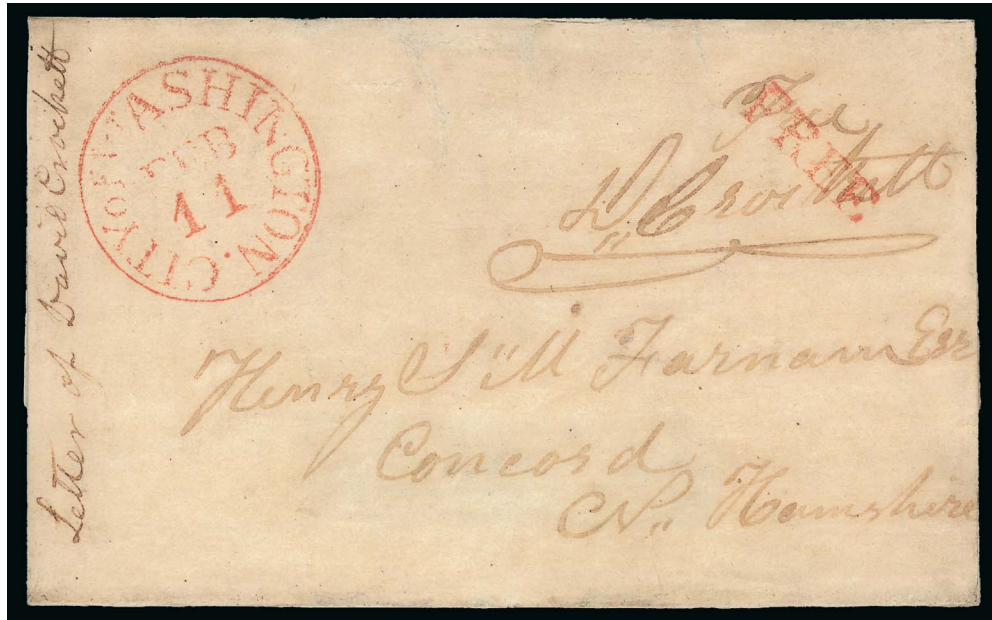 Letter of David Crockett
CITY of WASHINGTON.
FEB
11
Free
FREE.
D,, Crockett
Henry S,, M Farnam Esr
Concord
N,, Hamshire